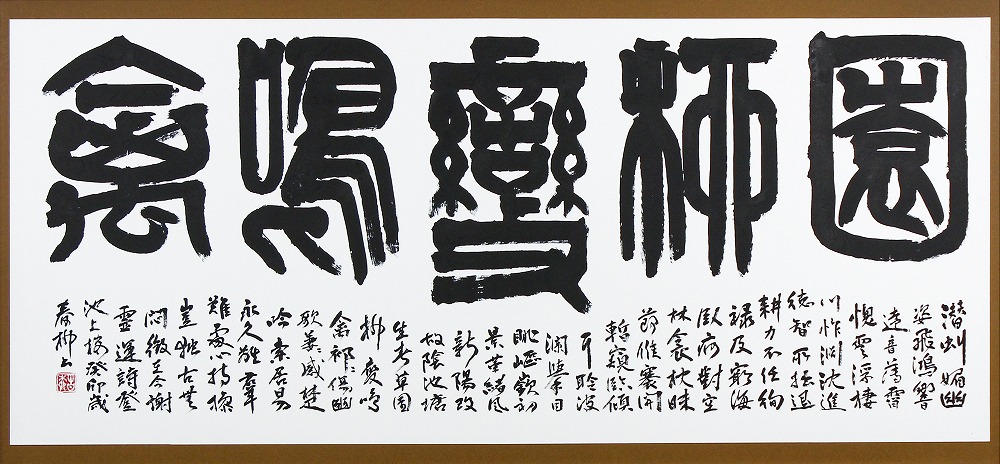 園柳變鳴禽
潜虬媚幽
姿飛鴻響
遠音薄霄
愧雲浮棲
川怍渕沈進
徳智所拙退
耕力不任徇
禄及窮海
臥痾對空
林衾枕昧
節候褰開
暫窺臨傾
耳聆波
瀾舉目
眺嶇嶔初
景革緒風
新陽改
故陰池塘
生春草園
柳變鳴
禽祁々傷豳
歌萋感楚
吟索居易
永久離羣
難處心持操
豈獨古無
悶徴在今謝
靈運詩登
池上楼癸卯歳
春柳